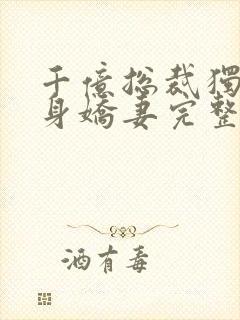 千億總裁獨
身嬌妻完整
酒有毒